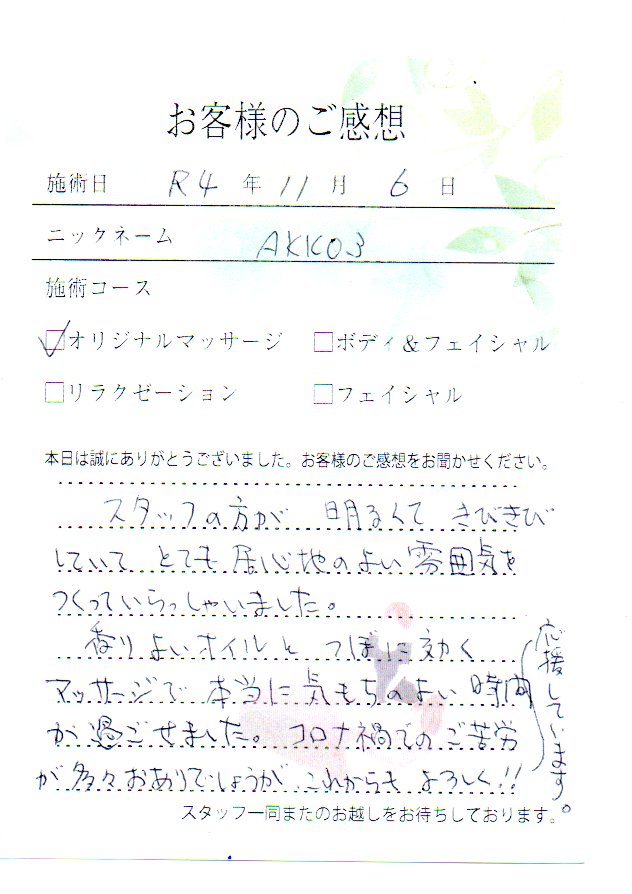 お客様のご感想
施術日 R4 年 11 月 6 日
ニックネーム AKKO3
施術コース
☑オリジナルマッサージ □ボディ&フェイシャル
□リラクゼーション □フェイシャル
本日は誠にありがとうございました。お客様のご感想をお聞かせください。
スタッフの方が 明るくて きびきび
していて とても 居心地のよい 雰囲気を
つくっていらっしゃいました。
香りよいオイルと つぼに効く
マッサージで 本当に 気もちのよい 時間
が過ごせました。 コロナ禍でのご苦労
が多々おありでしょうが、これからも よろしく!!
応援しています。
スタッフ一同またのお越しをお待ちしております。